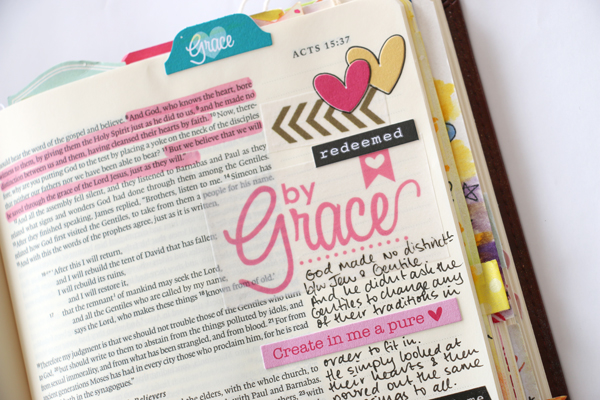 Grace
ACTS 15:37
redeemed
by
Grace
should hear the word of the gospel and believe. And God, who knows the heart, bore
to them, by giving them the Holy Spirit just as he did to us, and he made no
distinction between us and them, having cleansed their hearts by faith. Now, there-
why are you putting God to the test by placing a yoke on the neck of the disciples
our fathers nor we have been able to bear? But we believe that we will
be saved through the grace of the Lord Jesus, just as they will."
And all the assembly fell silent, and they listened to Barnabas and Paul as they
related what signs and wonders God had done through them among the Gentiles.
After they finished speaking, James replied, "Brothers, listen to me. Simeon has
related how God first visited the Gentiles, to take from them a people for his name.
And with this the words of the prophets agree, just as it is written,
"After this I will return,
and I will rebuild the tent of David that has fallen;
I will rebuild its ruins,
and I will restore it,
that the remnant of mankind may seek the Lord,
and all the Gentiles who are called by my name,
says the Lord, who makes these things known from of old.'
Therefore my judgment is that we should not trouble those of the Gentiles who turn
to God, but should write to them to abstain from the things polluted by idols, and
from sexual immorality, and from what has been strangled, and from blood. For from
ancient generations Moses has had in every city those who proclaim him, for he is read
in the synagogues."
Believers
the elders, with the whole church, to
with Paul and Barnabas.
God made no distinct-
b/w Jew & Gentile.
And he didn't ask the
Gentiles to change any
of their traditions in
Create in me a pure
order to fit in.
He simply looked at
their hearts & then
poured out the same
to all.